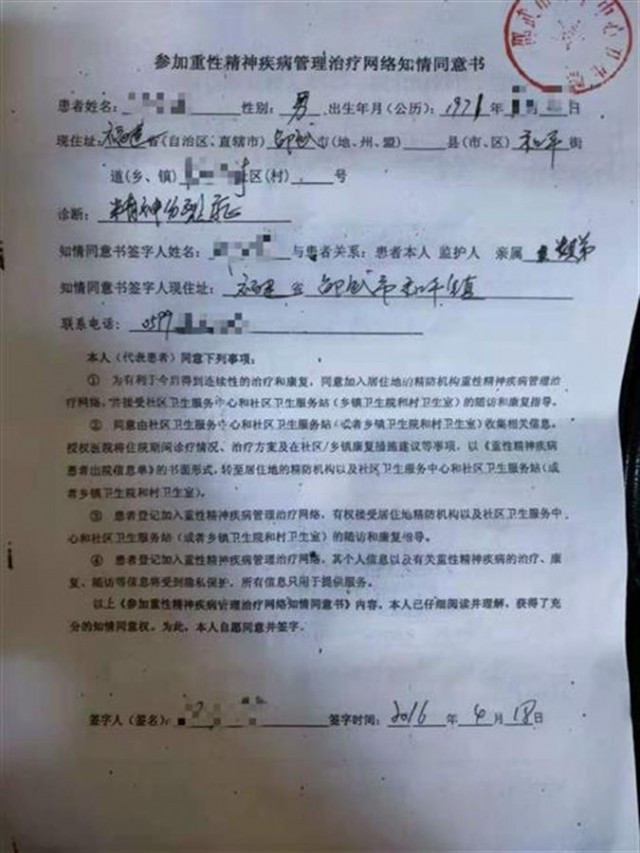 参加重性精神疾病管理治疗网络知情同意书
患者姓名: 性别: 男 出生年月(公历): 1971 年 日
现住址: 福建省(自治区、直辖市) 邵武市(地、州、盟) 县(市、区) 和平 街
道(乡、镇) 社区(村) 号
诊断: 精神分裂症
知情同意书签字人姓名: 与患者关系: 患者本人 监护人 亲属
知情同意书签字人现住址: 福建省 邵武市和平镇
联系电话: 0599
本人(代表患者)同意下列事项:
① 为有利于今后得到连续性的治疗和康复,同意加入居住地的精防机构重性精神疾病管理治
疗网络,并接受社区卫生服务中心和社区卫生服务站(乡镇卫生院和村卫生室)的随访和康复指导。
② 同意由社区卫生服务中心和社区卫生服务站(或者乡镇卫生院和村卫生室)收集相关信息。
授权医院将住院期间诊疗情况、治疗方案及在社区/乡镇康复措施建议等事项,以《重性精神疾病
患者出院信息单》的书面形式,转至居住地的精防机构以及社区卫生服务中心和社区卫生服务站(或
者乡镇卫生院和村卫生室)。
③ 患者登记加入重性精神疾病管理治疗网络,有权接受居住地精防机构以及社区卫生服务中
心和社区卫生服务站(或者乡镇卫生院和村卫生室)的随访和康复指导。
④ 患者登记加入重性精神疾病管理治疗网络,其个人信息以及有关重性精神疾病的治疗、康
复、随访等信息将受到隐私保护,所有信息只用于提供服务。
以上《参加重性精神疾病管理治疗网络知情同意书》内容,本人已仔细阅读并理解,获得了充
分的知情同意权。为此,本人自愿同意并签字。
签字人(签名): 签字时间: 2016 年 4 月 18 日